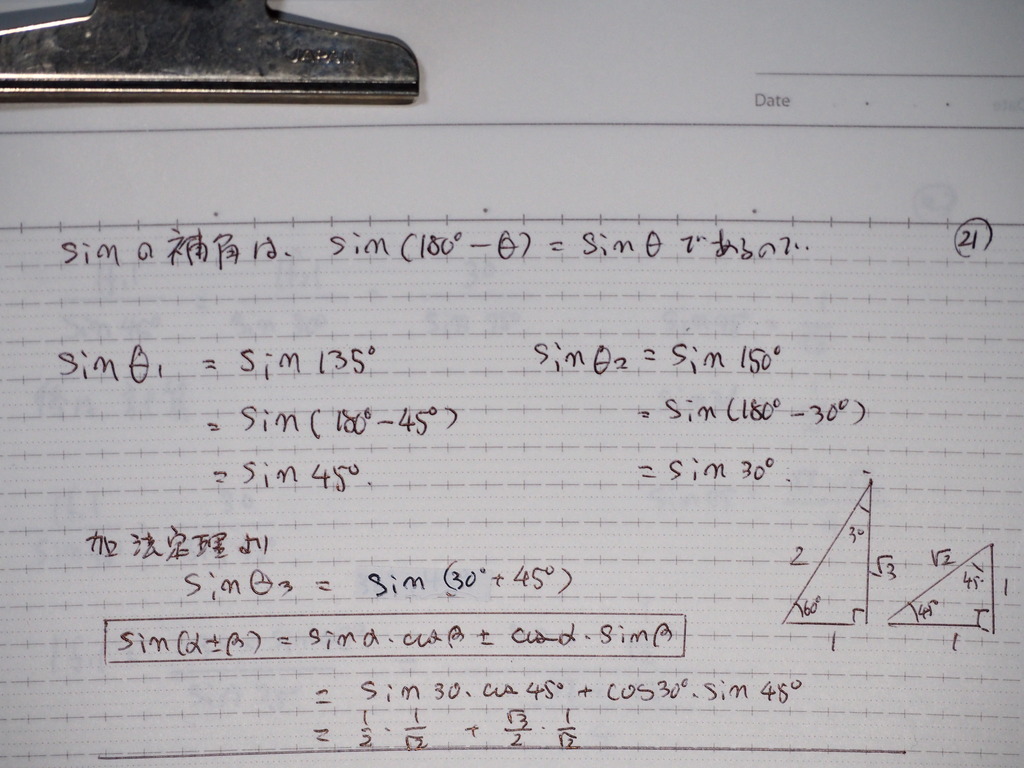 JAPAN
Date
sinの補角は、 sin(180° − θ) = sinθ であるので.. ㉑
sinθ₁ = sin 135° sinθ₂ = sin 150°
= sin(180° − 45°) = sin(180° − 30°)
= sin 45°. = sin 30°.
加法定理より
sinθ₃ = sin(30° + 45°)
sin(α±β) = sinα・cosβ ± cosα・sinβ
= sin 30・cos 45° + cos30°・sin 45°
= 1/2・1/√2 + √3/2・1/√2
30
2
√3
60°
1
√2
45
1
45°
1